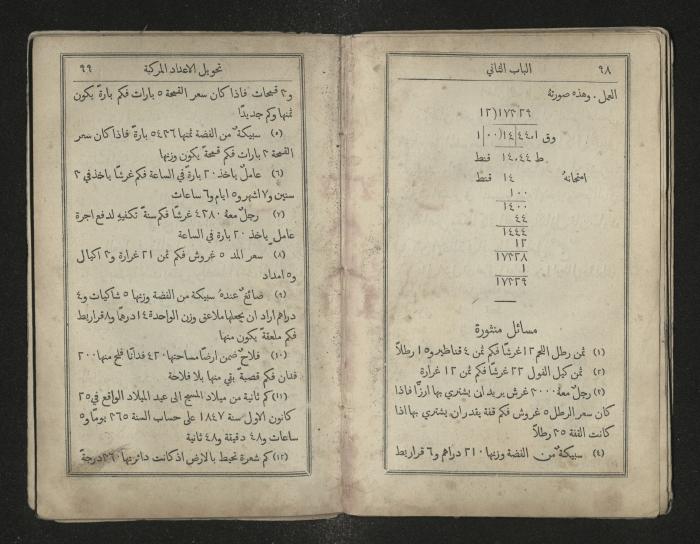 ٩٨ الباب الثاني
العمل . وهذه صورته
١٧٣٢٩(١٢
وق ١٤٤٤٠١(٠٠|١
ط ١٤٠٤٤ قنط
امتحانهُ ١٤ قنط
١٠٠
١٤٠٠
٤٤
١٤٤٤
١٢
١٧٣٢٨
١
١٧٣٢٩
مسائل منثورة
(١) ثمن رطل اللحم ١٢ غرشًا فكم ثمن ٤ قناطير و١٥ رطلاً
(٢) ثمن كيل الفول ٢٢ غرشًا فكم ثمن ١٢ غرارة
(٣) رجلٌ معهُ ٣٠٠٠ غرش يريد ان يشتري بها ارزًا فاذا
كان سعر الرطل ٥ غروش فكم قفة يقدر ان يشتري بها اذا
كانت القفة ٢٥ رطلاً
(٤) سبيكةٌ من الفضة وزنها ٢١٠ دراهم و٦ قراريط
تحويل الاعداد المركبة ٩٩
و٣ قمحات فاذا كان سعر القمحة ٥ بارات فكم بارةً يكون
ثمنها وكم جديدًا
(٥) سبيكةٌ من الفضة ثمنها ٥٤٣٦ بارةً فاذا كان سعر
القمحة ٣ بارات فكم قمحةً يكون وزنها
(٦) عاملٌ ياخذ ٢٠ بارةً في الساعة فكم غرشًا ياخذ في ٣
سنين و٧ اشهر و٥ ايام و٦ ساعات
(٧) رجلٌ معهُ ٤٣٨٠ غرشًا فكم سنةً تكفيهِ لدفع اجرة
عامل ياخذ ٢٠ بارة في الساعة
(٨) سعر المد ٥ غروش فكم ثمن ٢١ غرارة و٣ اكيال
و٥ امداد
(٩) صائغٌ عندهُ سبيكة من الفضة وزنها ٥ شاكيات و٤
دراهم اراد ان يجعلها ملاعق وزن الواحدة ١٤ درهمًا و٨ قراريط
فكم ملعقةً يكون منها
(١٠) فلاحٌ ضمن ارضًا مساحتها ٤٢٠ فدانًا فلح منها ٢٠٠
فدان فكم قصبةً بقي منها بلا فلاحة
(١١) كم ثانية من ميلاد المسيح الى عيد الميلاد الواقع في ٢٥
كانون الاول سنة ١٨٤٧ على حساب السنة ٣٦٥ يومًا و٥
ساعات و٤٨ دقيقة و٤٨ ثانية
(١٢) كم شعرة تحيط بالارض اذ كانت دائرتها ٣٦٠ درجةً